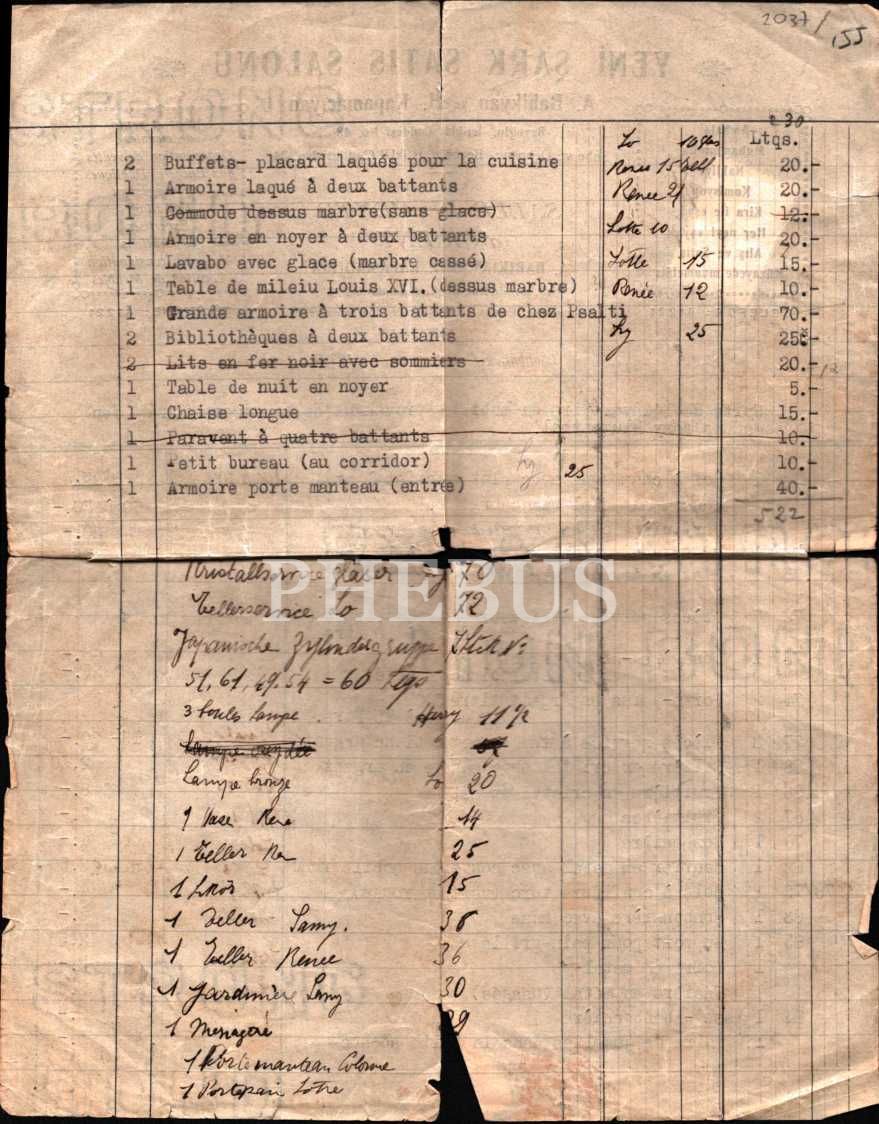 2037/155
YENI ŞARK SATIŞ SALONU
230
Lo Ltqs.
2 Buffets- placard laqués pour la cuisine Renée 15 20.-
1 Armoire laqué à deux battants Renée 21 20.-
1 Commode dessus marbre(sans glace) 12.-
1 Armoire en noyer à deux battants Lotte 10 20.-
1 Lavabo avec glace (marbre cassé) Lotte 15 15.-
1 Table de mileiu Louis XVI.(dessus marbre) Renée 12 10.-
1 Grande armoire à trois battants de chez Psalti 70.-
2 Bibliothèques à deux battants Hy 25 25.-
2 Lits en fer noir avec sommiers 20.-
1 Table de nuit en noyer 5.-
1 Chaise longue 15.-
1 Paravent à quatre battants 10.-
1 Petit bureau (au corridor) Hy 25 10.-
1 Armoire porte manteau (entrée) 40.-
522
Kristallservice gläser Hy 70
PHEBUS
Tellerservice Lo 72
Japanische
51, 61, 49. 54 = 60
3 boules lampe Henry 11 1/2
Lampe bronze Lo 20
1 Vase Rene 14
1 Teller Re 25
1 Likör 15
1 Teller Samy. 38
1 Teller Renee 36
1 Jardinière Samy 30
1 29
1 Portemanteau Colonne
1 Portepain Lotte